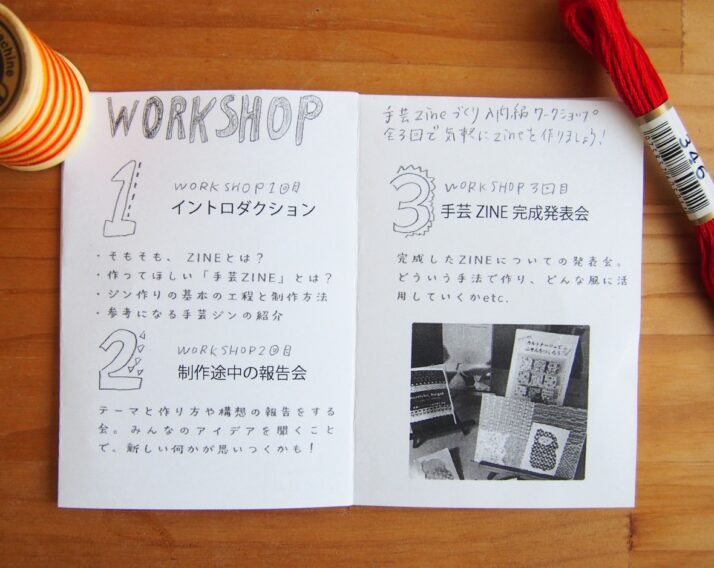 WORKSHOP
WORKSHOP1回目
イントロダクション
・そもそも、ZINEとは？
・作ってほしい「手芸ZINE」とは？
・ジン作りの基本の工程と制作方法
・参考になる手芸ジンの紹介
WORKSHOP2回目
制作途中の報告会
テーマと作り方や構想の報告をする
会。みんなのアイデアを聞くこと
で、新しい何かが思いつくかも！
手芸zineづくり入門編ワークショップ。
全3回で気軽にzineを作りましょう！
WORKSHOP3回目
手芸 ZINE 完成発表会
完成したZINEについての発表会。
どういう手法で作り、どんな風に活
用していくかetc.
1
2
3
346
machine
カルトナージュで